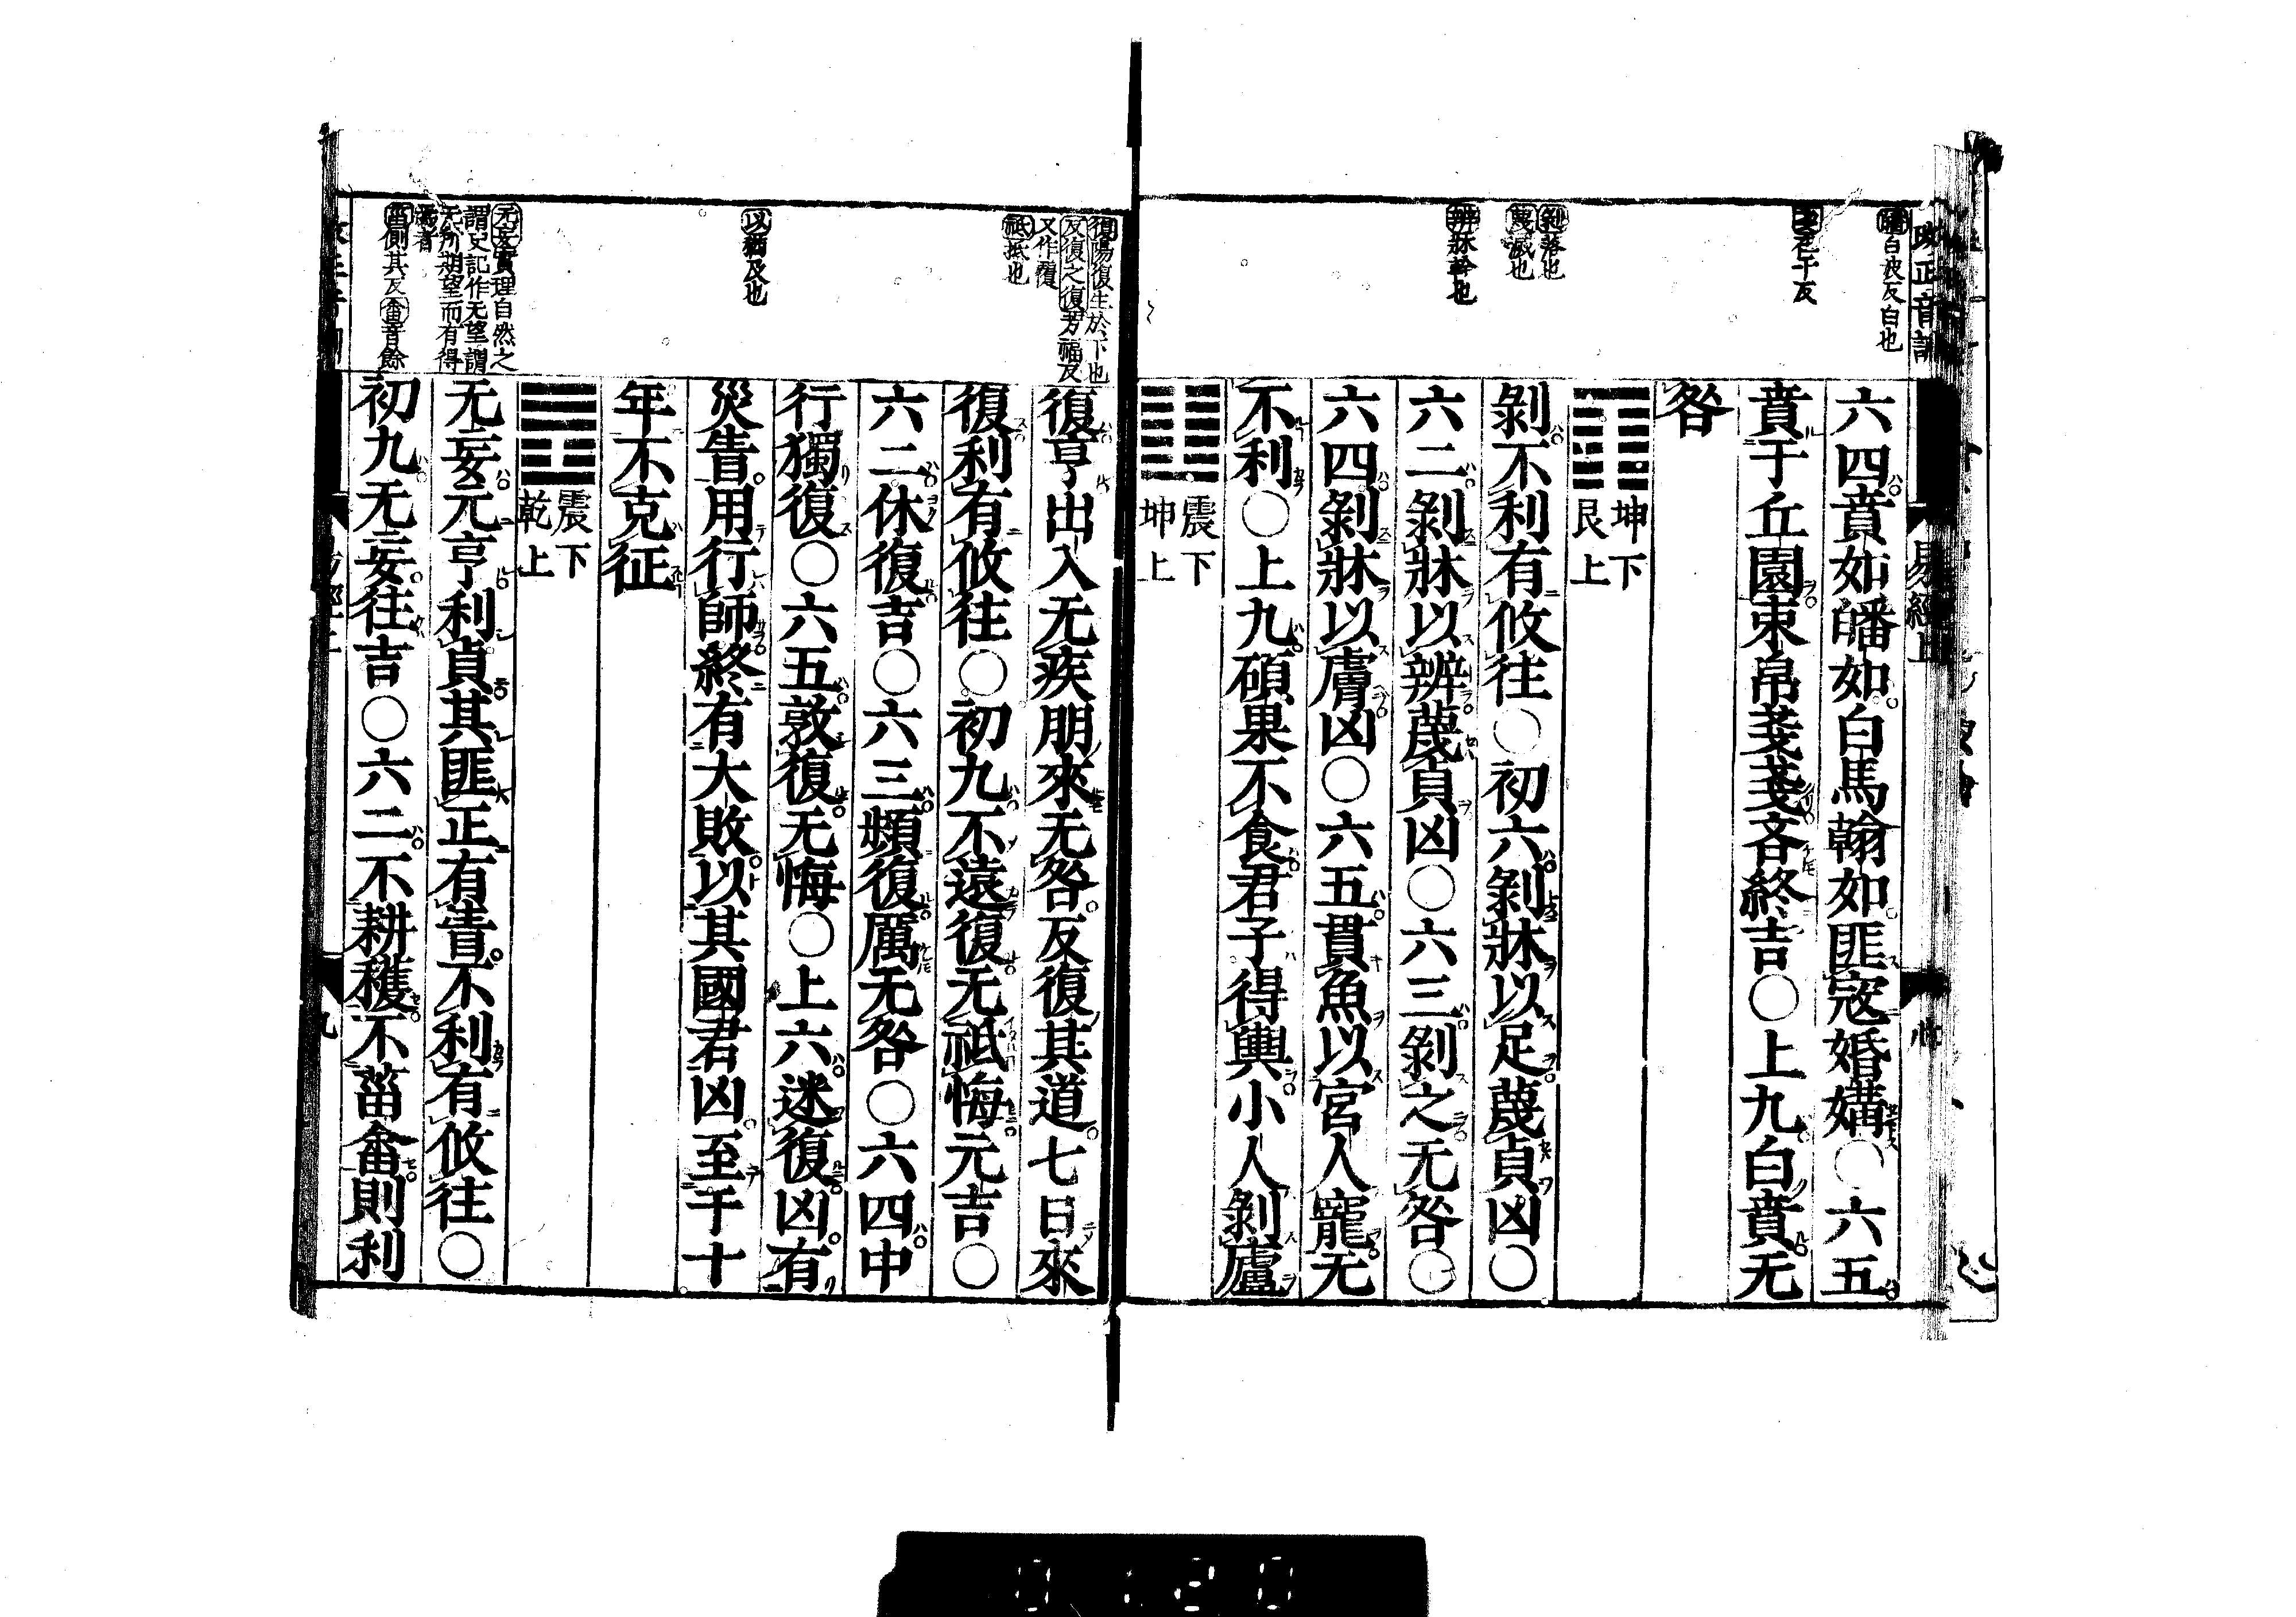 六四賁如皤如白馬翰如匪寇婚媾○六五
賁于丘園束帛戔戔吝終吉○上九白賁无
咎
坤下
艮上
剝不利有攸往○初六剝牀以足蔑貞凶○
六二剝牀以辨蔑貞凶○六三剝之无咎○
六四剝牀以膚凶○六五貫魚以宮人寵无
不利○上九碩果不食君子得輿小人剝廬
震下
坤上
剝落也
蔑滅也
辨牀幹也
復亨出入无疾朋來无咎反復其道七日來
復利有攸往○初九不遠復无祗悔元吉○
六二休復吉○六三頻復厲无咎○六四中
行獨復○六五敦復无悔○上六迷復凶有
災眚用行師終有大敗以其國君凶至于十
年不克征
震下
乾上
无妄元亨利貞其匪正有眚不利有攸往○
初九无妄往吉○六二不耕穫不菑畬則利
復陽復生於下也
反復之復芳福反
又作覆
祗抵也
以猶及也
无妄實理自然之
謂史記作无望謂
无所期望而有得
焉者
菑側其反畬音餘
九